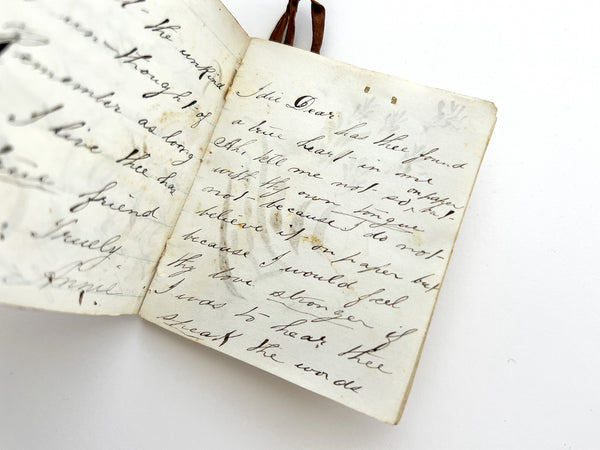 - the unkind
un - thought of
Remember as long
I live thee has
true friend
Truely
Annie
Idie Dear has thee found
a true heart - in me
Ah, tell me not so, on paper but
with thy own tongue
not - because I do not -
believe it on paper but
because I would feel
thy love stronger if
I was to hear thee
speak the words